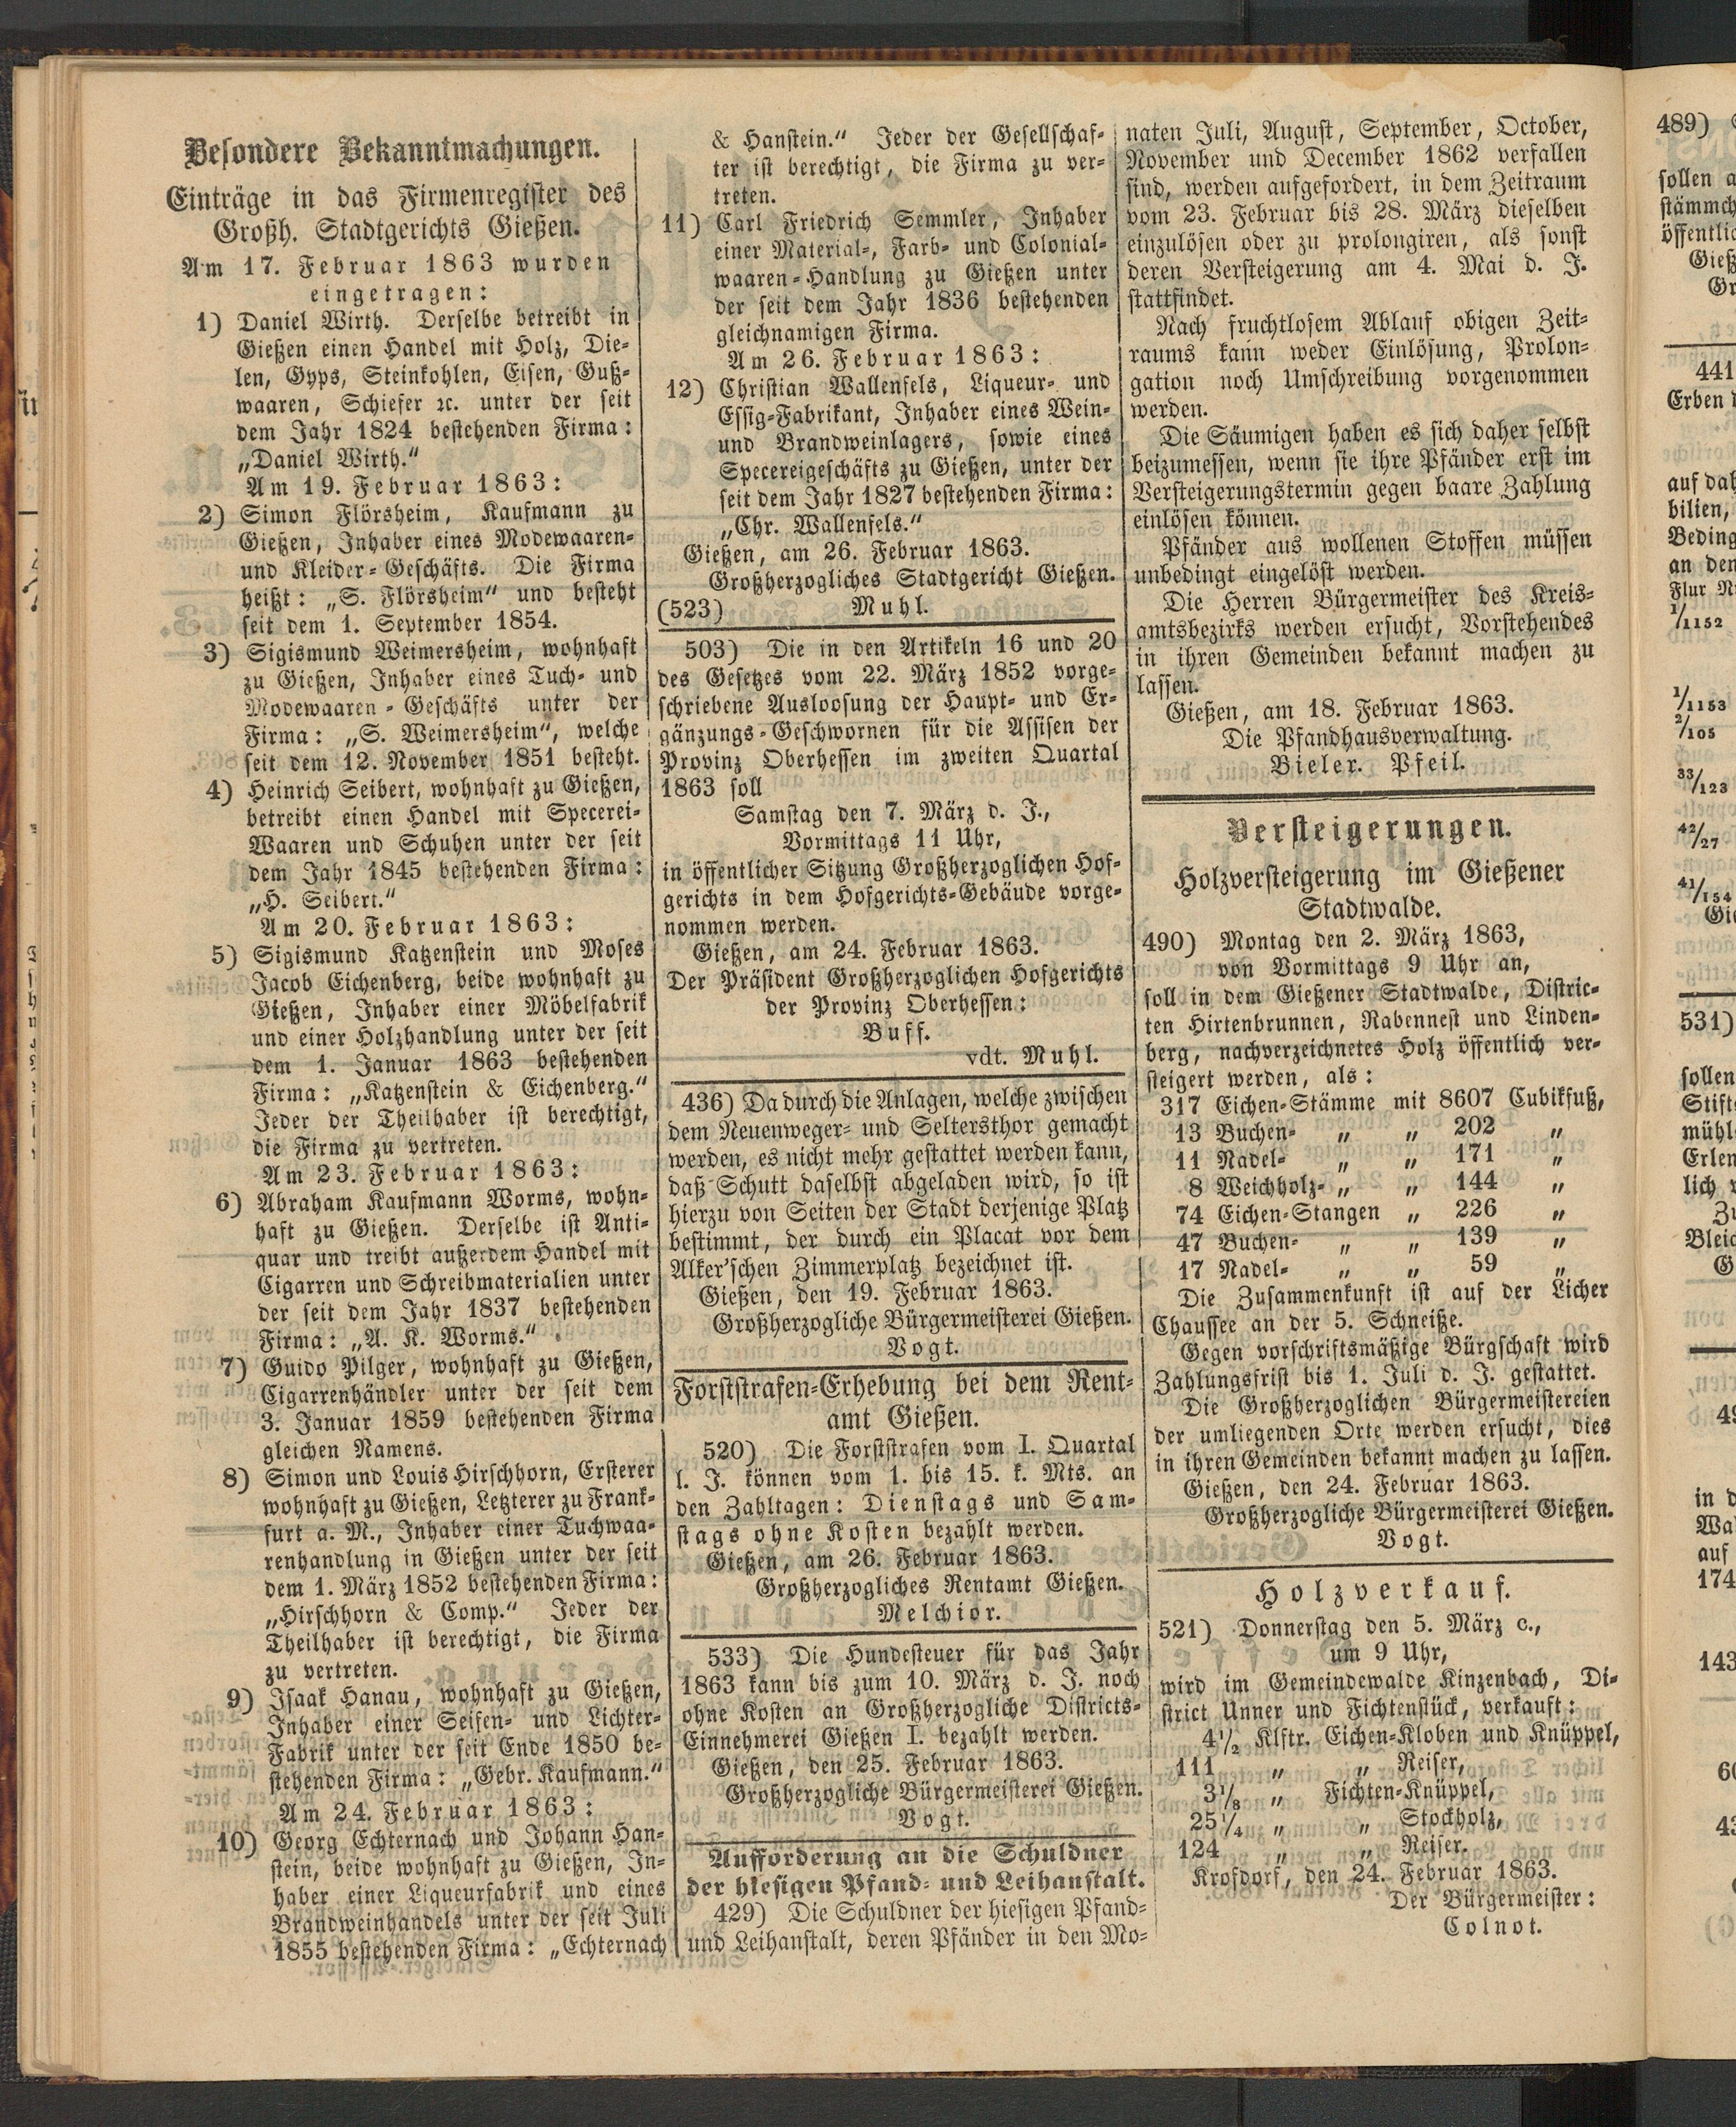 Besondere Bekanntmachungen.
Einträge in das Firmenregister des
Großh. Stadtgerichts Gießen.
Am 17. Februar 1863 wurden
eingetragen:
1) Daniel Wirth. Derselbe betreibt in
Gießen einen Handel mit Holz, Die-
len, Gyps, Steinkohlen, Eisen, Guß-
waaren, Schiefer ꝛc. unter der seit
dem Jahr 1824 bestehenden Firma:
„Daniel Wirth.“
Am 19. Februar 1863:
2) Simon Flörsheim, Kaufmann zu
Gießen, Inhaber eines Modewaaren-
und Kleider-Geschäfts. Die Firma
heißt: „S. Flörsheim“ und besteht
seit dem 1. September 1854.
3) Sigismund Weimersheim, wohnhaft
zu Gießen, Inhaber eines Tuch- und
Modewaaren-Geschäfts unter der
Firma: „S. Weimersheim“, welche
seit dem 12. November 1851 besteht.
4) Heinrich Seibert, wohnhaft zu Gießen,
betreibt einen Handel mit Specerei-
Waaren und Schuhen unter der seit
dem Jahr 1845 bestehenden Firma:
„H. Seibert.“
Am 20. Februar 1863:
5) Sigismund Katzenstein und Moses
Jacob Eichenberg, beide wohnhaft zu
Gießen, Inhaber einer Möbelfabrik
und einer Holzhandlung unter der seit
dem 1. Januar 1863 bestehenden
Firma: „Katzenstein & Eichenberg.“
Jeder der Theilhaber ist berechtigt,
die Firma zu vertreten.
Am 23. Februar 1863:
6) Abraham Kaufmann Worms, wohn-
haft zu Gießen. Derselbe ist Anti-
quar und treibt außerdem Handel mit
Cigarren und Schreibmaterialien unter
der seit dem Jahr 1837 bestehenden
Firma: „A. K. Worms.“
7) Guido Pilger, wohnhaft zu Gießen,
Cigarrenhändler unter der seit dem
3. Januar 1859 bestehenden Firma
gleichen Namens.
8) Simon und Louis Hirschhorn, Ersterer
wohnhaft zu Gießen, Letzterer zu Frank-
furt a. M., Inhaber einer Tuchwaa-
renhandlung in Gießen unter der seit
dem 1. März 1852 bestehenden Firma:
„Hirschhorn & Comp.“ Jeder der
Theilhaber ist berechtigt, die Firma
zu vertreten.
9) Isaak Hanau, wohnhaft zu Gießen,
Inhaber einer Seifen- und Lichter-
Fabrik unter der seit Ende 1850 be-
stehenden Firma: „Gebr. Kaufmann.“
Am 24. Februar 1863:
10) Georg Echternach und Johann Han-
stein, beide wohnhaft zu Gießen, In-
haber einer Liqueurfabrik und eines
Brandweinhandels unter der seit Juli
1855 bestehenden Firma: „Echternach
& Hanstein.“ Jeder der Gesellschaf-
ter ist berechtigt, die Firma zu ver-
treten.
11) Carl Friedrich Semmler, Inhaber
einer Material-, Farb- und Colonial-
waaren-Handlung zu Gießen unter
der seit dem Jahr 1836 bestehenden
gleichnamigen Firma.
Am 26. Februar 1863:
12) Christian Wallenfels, Liqueur- und
Essig-Fabrikant, Inhaber eines Wein-
und Brandweinlagers, sowie eines
Specereigeschäfts zu Gießen, unter der
seit dem Jahr 1827 bestehenden Firma:
„Chr. Wallenfels.“
Gießen, am 26. Februar 1863.
Großherzogliches Stadtgericht Gießen.
(523) Muhl.
503) Die in den Artikeln 16 und 20
des Gesetzes vom 22. März 1852 vorge-
schriebene Ausloosung der Haupt- und Er-
gänzungs-Geschwornen für die Assisen der
Provinz Oberhessen im zweiten Quartal
1863 soll
Samstag den 7. März d. J.,
Vormittags 11 Uhr,
in öffentlicher Sitzung Großherzoglichen Hof-
gerichts in dem Hofgerichts-Gebäude vorge-
nommen werden.
Gießen, am 24. Februar 1863.
Der Präsident Großherzoglichen Hofgerichts
der Provinz Oberhessen:
Buff.
vdt. Muhl.
436) Da durch die Anlagen, welche zwischen
dem Neuenweger- und Seltersthor gemacht
werden, es nicht mehr gestattet werden kann,
daß Schutt daselbst abgeladen wird, so ist
hierzu von Seiten der Stadt derjenige Platz
bestimmt, der durch ein Placat vor dem
Alker'schen Zimmerplatz bezeichnet ist.
Gießen, den 19. Februar 1863.
Großherzogliche Bürgermeisterei Gießen.
Vogt.
Forststrafen-Erhebung bei dem Rent-
amt Gießen.
520) Die Forststrafen vom I. Quartal
l. J. können vom 1. bis 15. k. Mts. an
den Zahltagen: Dienstags und Sam-
stags ohne Kosten bezahlt werden.
Gießen, am 26. Februar 1863.
Großherzogliches Rentamt Gießen.
Melchior.
533) Die Hundesteuer für das Jahr
1863 kann bis zum 10. März d. J. noch
ohne Kosten an Großherzogliche Districts-
Einnehmerei Gießen I. bezahlt werden.
Gießen, den 25. Februar 1863.
Großherzogliche Bürgermeisterei Gießen.
Vogt.
Aufforderung an die Schuldner
der hiesigen Pfand- und Leihanstalt.
429) Die Schuldner der hiesigen Pfand-
und Leihanstalt, deren Pfänder in den Mo-
naten Juli, August, September, October,
November und December 1862 verfallen
sind, werden aufgefordert, in dem Zeitraum
vom 23. Februar bis 28. März dieselben
einzulösen oder zu prolongiren, als sonst
deren Versteigerung am 4. Mai d. J.
stattfindet.
Nach fruchtlosem Ablauf obigen Zeit-
raums kann weder Einlösung, Prolon-
gation noch Umschreibung vorgenommen
werden.
Die Säumigen haben es sich daher selbst
beizumessen, wenn sie ihre Pfänder erst im
Versteigerungstermin gegen baare Zahlung
einlösen können.
Pfänder aus wollenen Stoffen müssen
unbedingt eingelöst werden.
Die Herren Bürgermeister des Kreis-
amtsbezirks werden ersucht, Vorstehendes
in ihren Gemeinden bekannt machen zu
lassen.
Gießen, am 18. Februar 1863.
Die Pfandhausverwaltung.
Bieler. Pfeil.
Versteigerungen.
Holzversteigerung im Gießener
Stadtwalde.
490) Montag den 2. März 1863,
von Vormittags 9 Uhr an,
soll in dem Gießener Stadtwalde, Distric-
ten Hirtenbrunnen, Rabennest und Linden-
berg, nachverzeichnetes Holz öffentlich ver-
steigert werden, als:
317 Eichen-Stämme mit 8607 Cubikfuß,
13 Buchen- „ „ 202 „
11 Nadel- „ „ 171 „
8 Weichholz- „ „ 144 „
74 Eichen-Stangen „ 226 „
47 Buchen- „ „ 139 „
17 Nadel- „ „ 59 „
Die Zusammenkunft ist auf der Licher
Chaussee an der 5. Schneiße.
Gegen vorschriftsmäßige Bürgschaft wird
Zahlungsfrist bis 1. Juli d. J. gestattet.
Die Großherzoglichen Bürgermeistereien
der umliegenden Orte werden ersucht, dies
in ihren Gemeinden bekannt machen zu lassen.
Gießen, den 24. Februar 1863.
Großherzogliche Bürgermeisterei Gießen.
Vogt.
Holzverkauf.
521) Donnerstag den 5. März c.,
um 9 Uhr,
wird im Gemeindewalde Kinzenbach, Di-
strict Unner und Fichtenstück, verkauft:
4½ Klftr. Eichen-Kloben und Knüppel,
111 „ „ Reiser,
3⅛ „ Fichten-Knüppel,
25¼ „ „ Stockholz,
124 „ „ Reiser.
Krofdorf, den 24. Februar 1863.
Der Bürgermeister:
Colnot.
489)
sollen
stämmch
öffentlic
Gieß
441
Erben
auf dah
bilien,
Beding
an den
Flur
1/1152
1/1153
2/105
33/123
42/27
41/154
531)
sollen
Stift
mühl
Erlen
lich
Bleic
in
auf
174
143